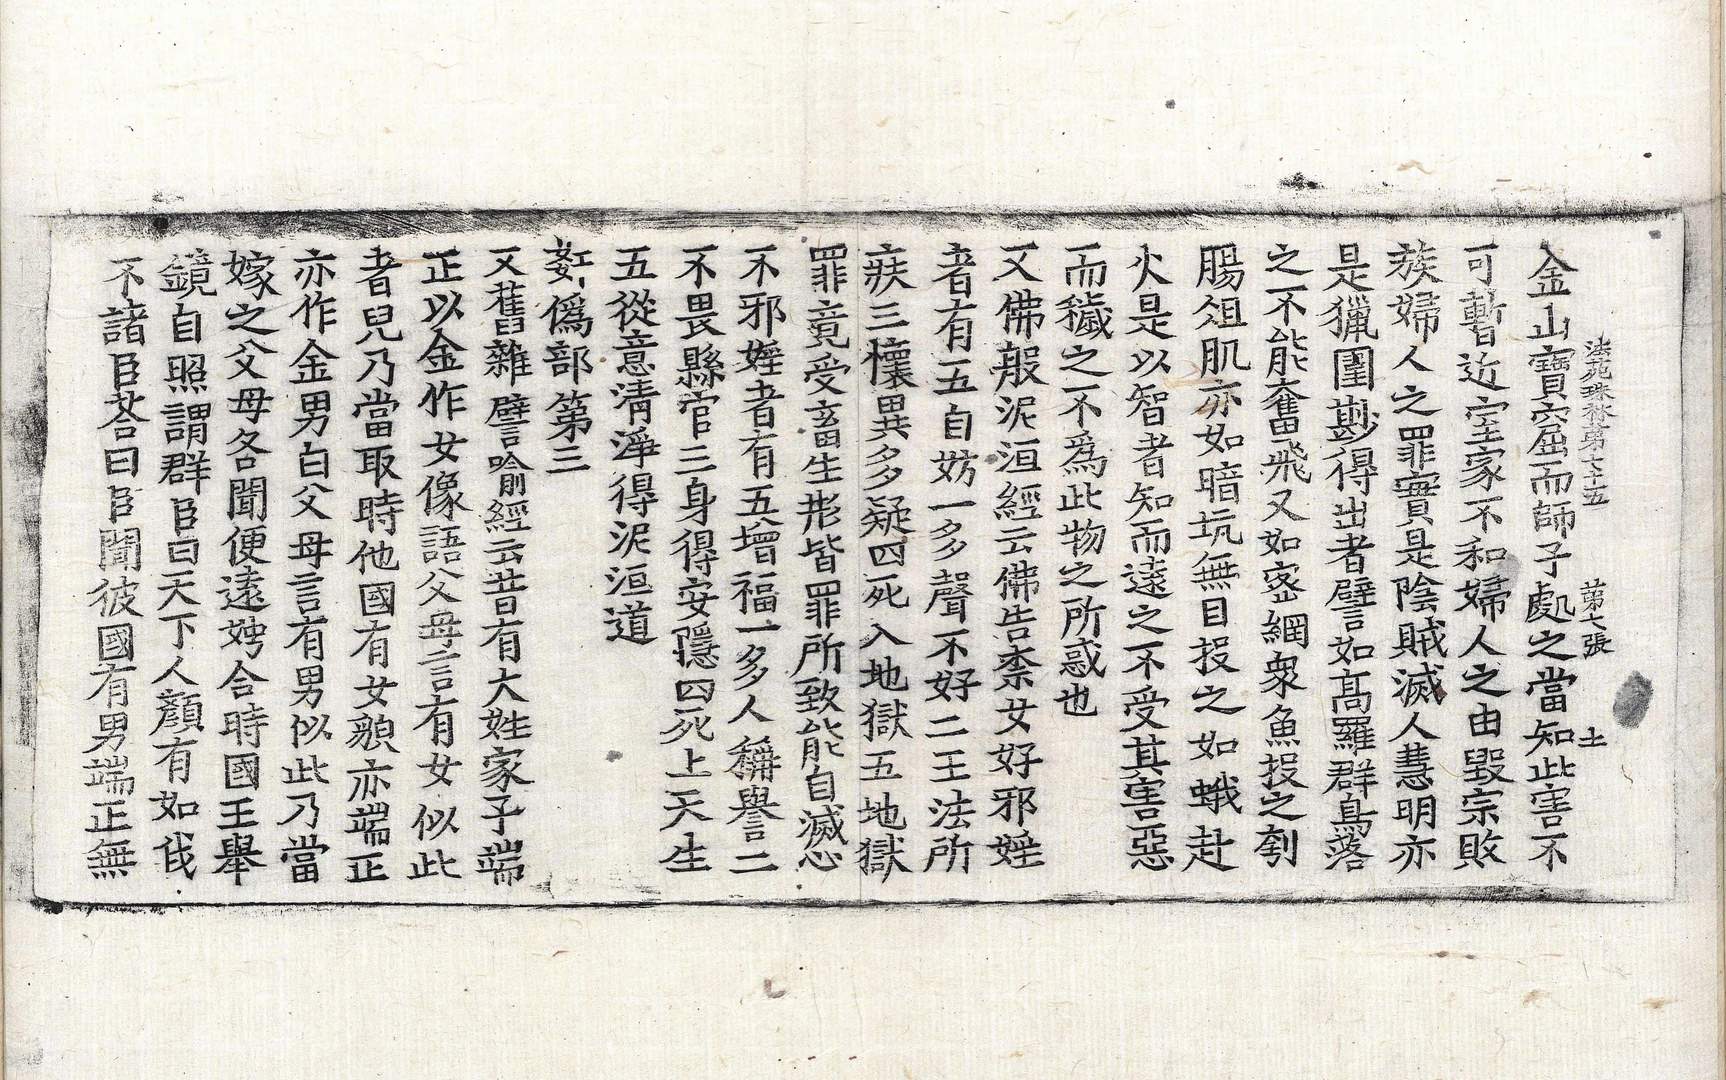 法苑珠林第七十五　第七張　土
入金山寶窟而師子處之當知此害不
可暫近室家不和婦人之由毀宗敗
族婦人之罪實是陰賊滅人慧明亦
是獵圍尠得出者譬如高羅群鳥落
之不能奮飛又如密網衆魚投之刳
腸俎肌亦如暗坑無目投之如蛾赴
火是以智者知而遠之不受其害惡
而穢之不爲此物之所惑也
又佛般泥洹經云佛告柰女好邪婬
者有五自妨一多聲不好二王法所
疾三懷異多疑四死入地獄五地獄
罪竟受畜生形皆罪所致能自滅心
不邪婬者有五增福一多人稱譽二
不畏縣官三身得安隱四死上天生
五從意清淨得泥洹道
姧僞部第三
又舊雜譬喻經云昔有大姓家子端
正以金作女像語父母言有女似此
者兒乃當取時他國有女貌亦端正
亦作金男白父母言有男似此乃當
嫁之父母各聞便遠娉合時國王舉
鏡自照謂群臣曰天下人顏有如我
不諸臣荅曰臣聞彼國有男端正無